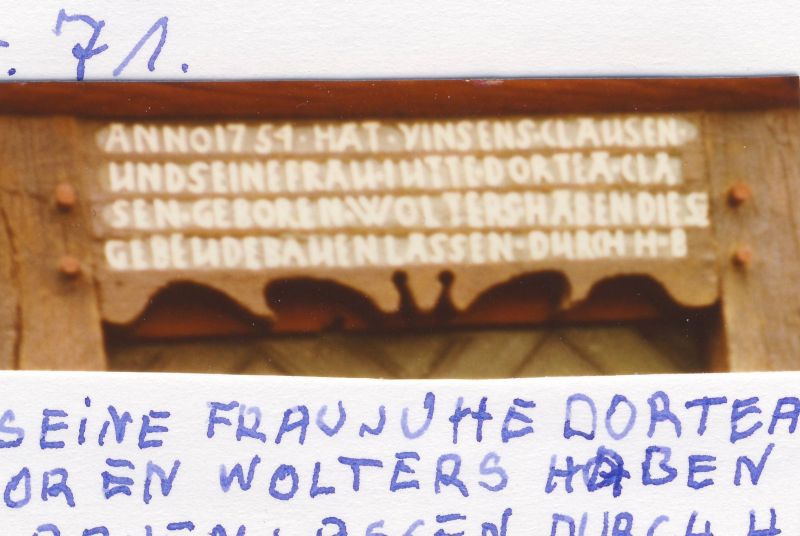 71.
ANNO 1754·HAT·VINSENS·CLAUSEN·
UND SEINE FRAU·IUTTE·DORTEA·CLA
SEN·GEBOREN·WOLTERS·HABEN DIES
GEBEUDE BAUEN LASSEN·DURCH H·B
SEINE FRAU JUHE DORTEA
OREN WOLTERS HABEN
LASSEN DURCH H